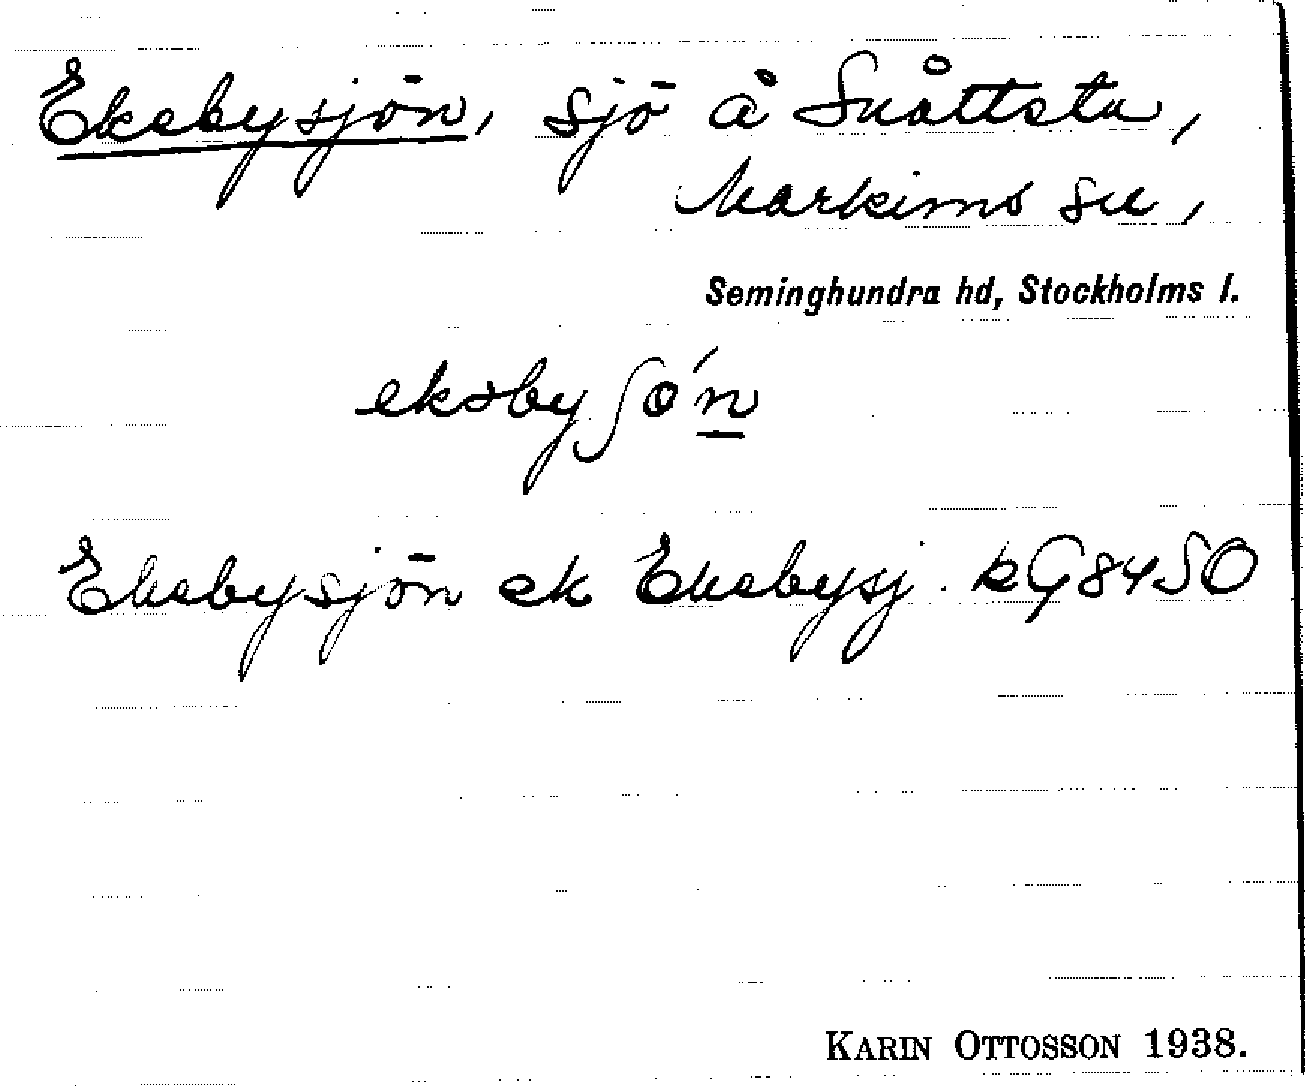 Eksbysjön, sjö å Snåttsta,
Markims sn,
Seminghundra hd, Stockholms l.
eksbyʃö́n
Eksbysjön ek Eksbysj. kG84SO
KARIN OTTOSSON 1938.